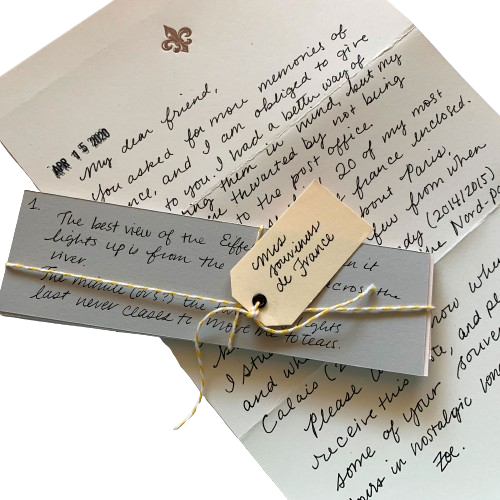 APR 15 2020
My dear friend,
You asked for more memories of
nce, and I am obliged to give
to you. I had a better way of
ing them in mind, but my
thwarted by not being
to the post office.
20 of my most
france enclosed.
bout Paris,
few from when
dy (2014/2015)
the Nord-P
now when
I stu
and wh
Calais (2
Please
te, and p
receive this
some of your souve
yours in nostalgic
Zoe.
1. The best view of the Eiffe
lights up is from the
river.
The minute (or 5?) the
last never ceases to move me to tears.
n it
across the
lights
mes
souvenirs
de France